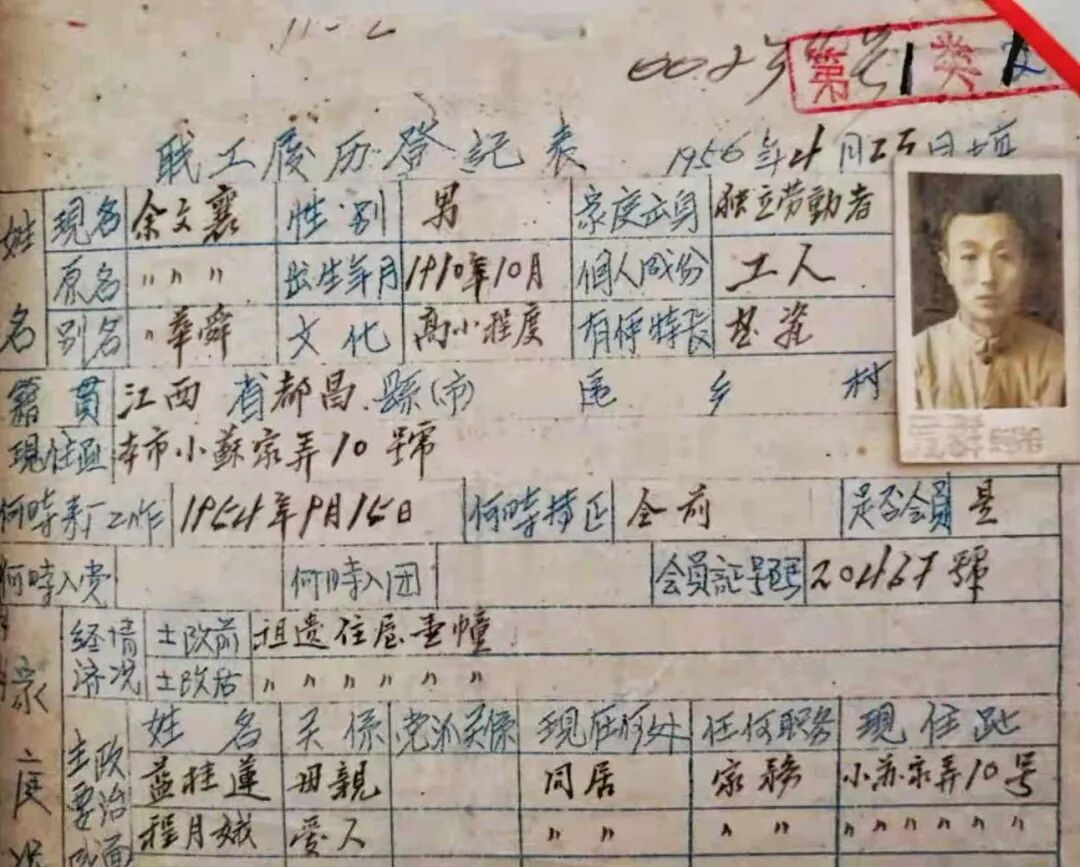 第1类
职工履历登記表 1956年4月25日填
姓名 現名 余文襄 性别 男 家庭出身 独立劳動者
原名 〃〃〃 出生年月 1910年10月 個人成份 工人
别名 〃華舜 文化 高小程度 有何特长
籍貫 江西省都昌縣(市) 区 乡 村
現住址 本市小蘇家弄10號
何時来厂工作 1954年9月15日 何時转正 仝前 是否会員 是
何時入党 何時入团 会員証号碼 號
家庭 经济情况 土改前 祖遗住屋壹幢
土改后 〃〃〃〃〃〃
主要 政治 姓名 关係 党派关係 現在何处 任何职务 現住址
桂蓮 母親 同居 家務 小苏家弄10号
程月娥 爱人 〃〃 〃〃 〃〃〃〃〃〃